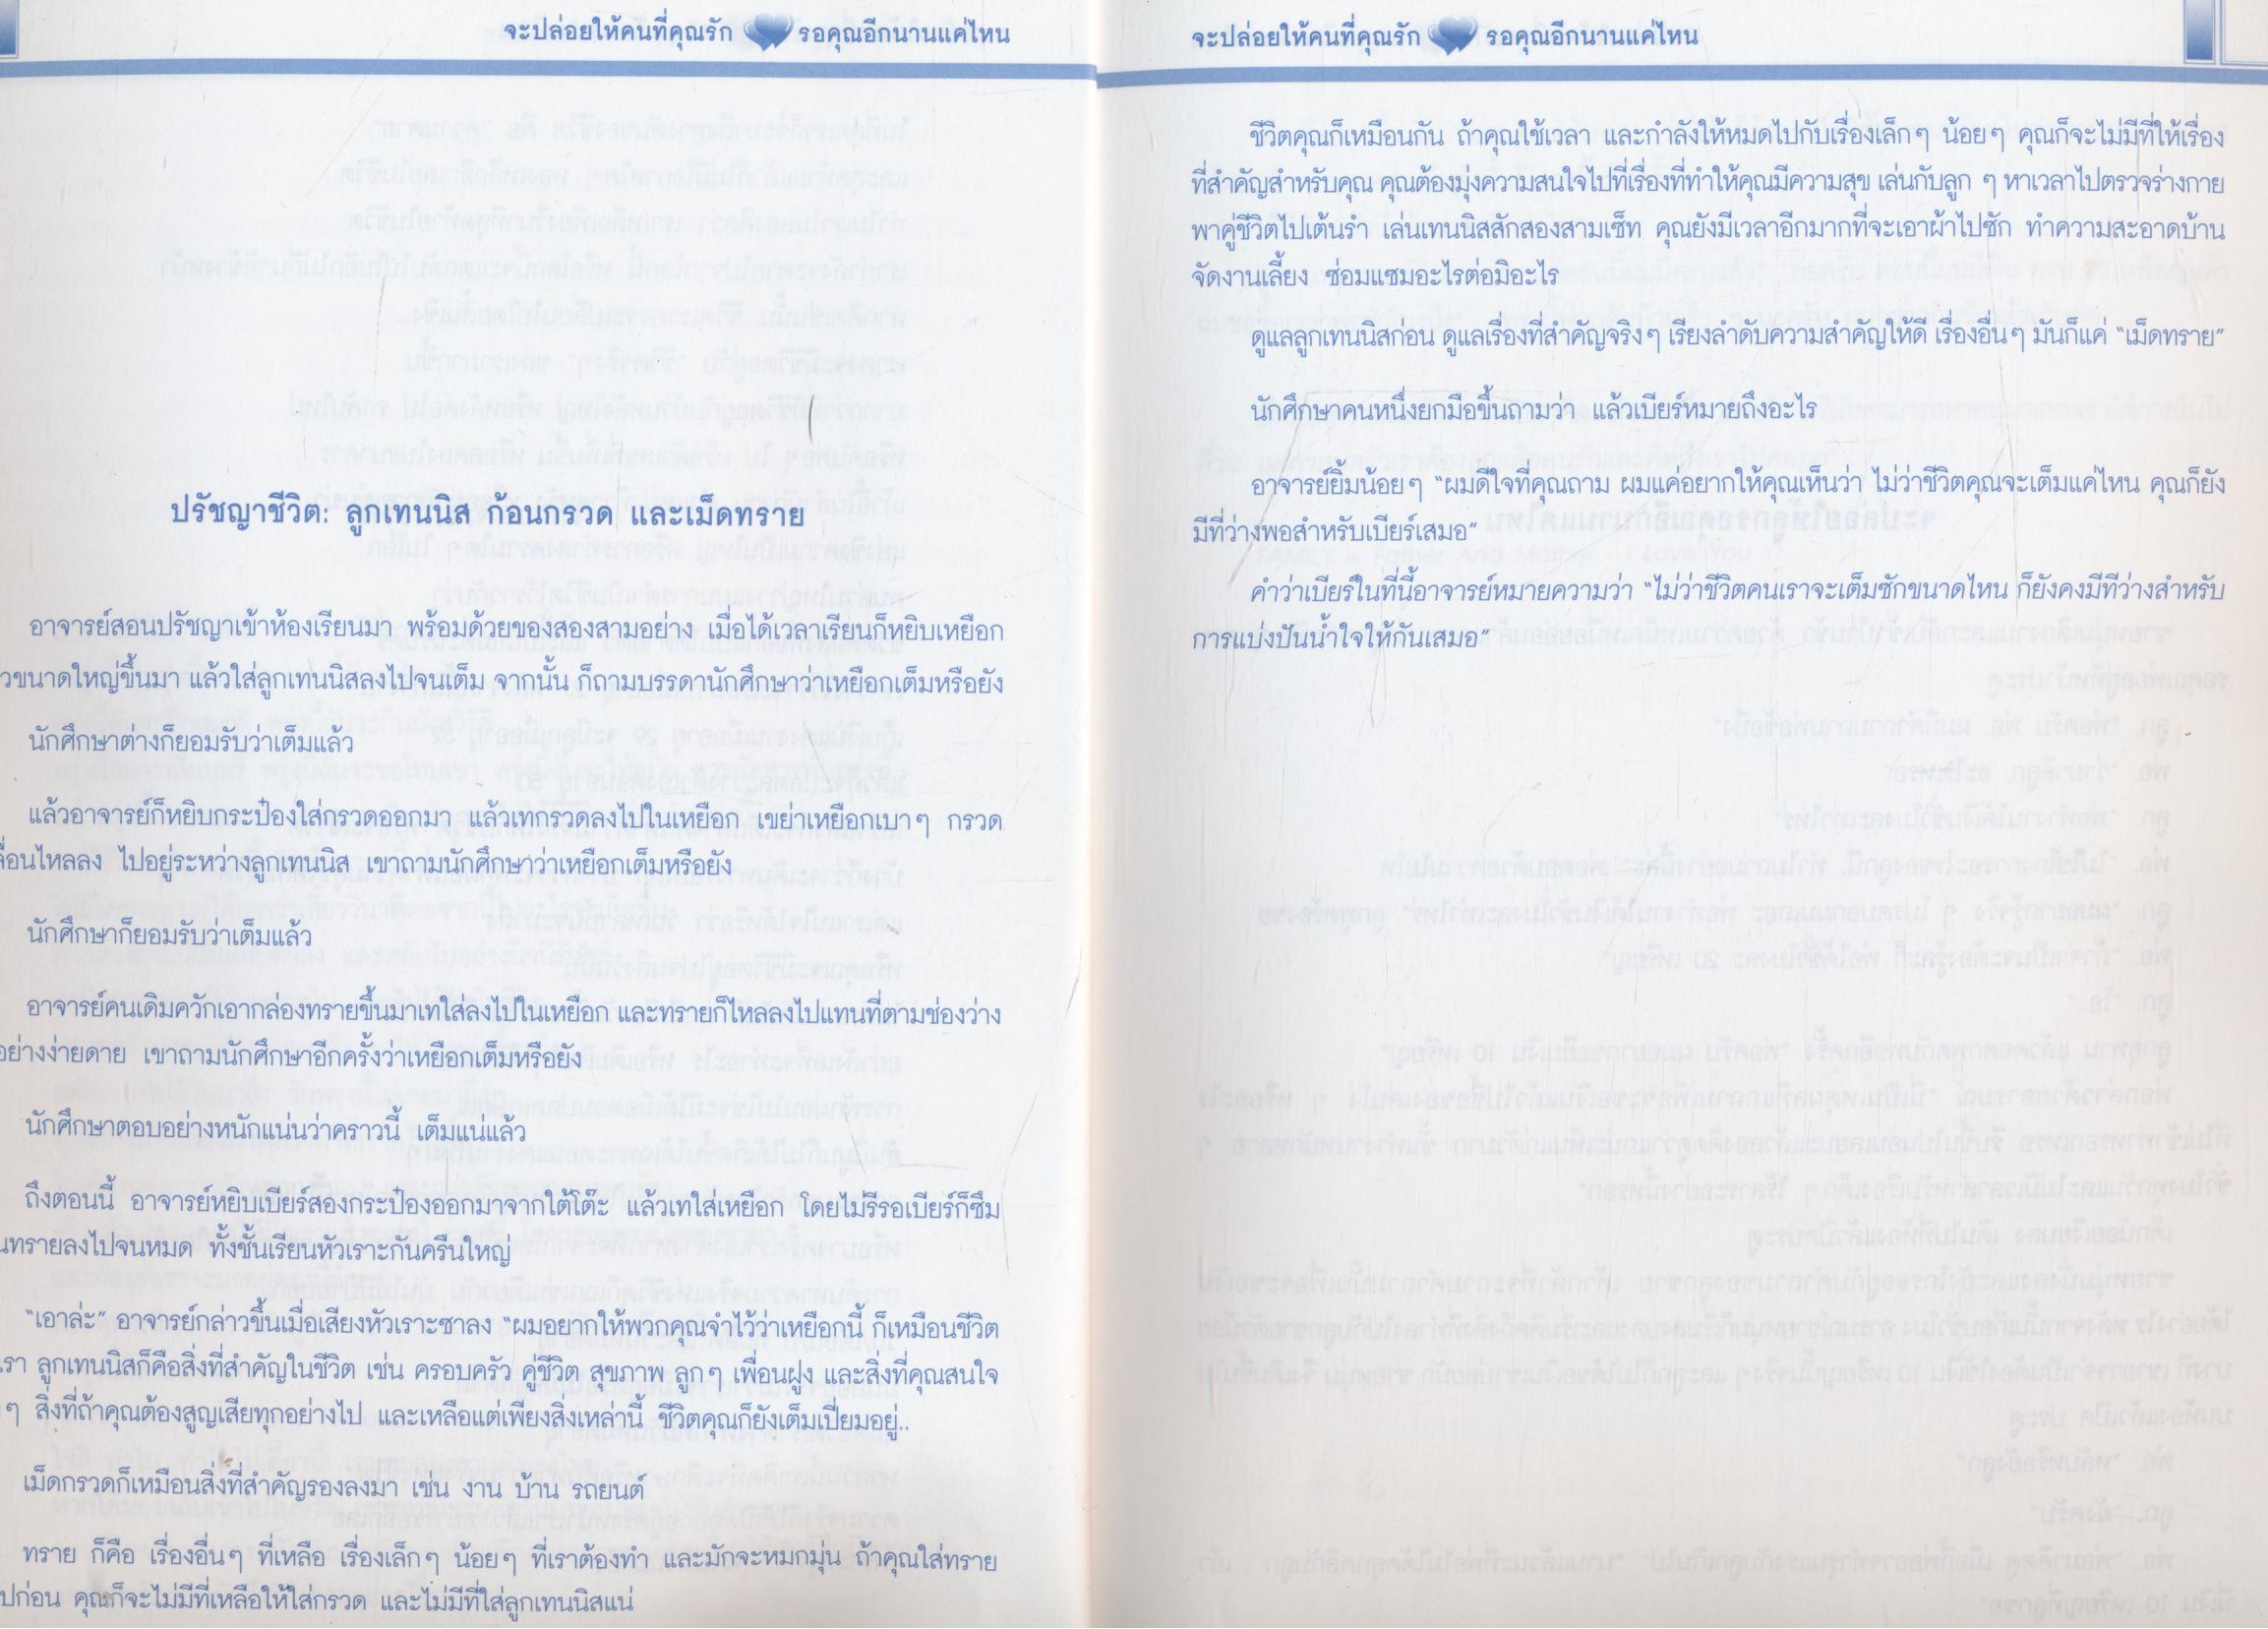 จะปล่อยให้คนที่คุณรัก รอคุณอีกนานแค่ไหน
ปรัชญาชีวิต: ลูกเทนนิส ก้อนกรวด และเม็ดทราย
อาจารย์สอนปรัชญาเข้าห้องเรียนมา พร้อมด้วยของสองสามอย่าง เมื่อได้เวลาเรียนก็หยิบเหยือก
วขนาดใหญ่ขึ้นมา แล้วใส่ลูกเทนนิสลงไปจนเต็ม จากนั้น ก็ถามบรรดานักศึกษาว่าเหยือกเต็มหรือยัง
นักศึกษาต่างก็ยอมรับว่าเต็มแล้ว
แล้วอาจารย์ก็หยิบกระป๋องใส่กรวดออกมา แล้วเทกรวดลงไปในเหยือก เขย่าเหยือกเบาๆ กรวด
ลื่อนไหลลง ไปอยู่ระหว่างลูกเทนนิส เขาถามนักศึกษาว่าเหยือกเต็มหรือยัง
นักศึกษาก็ยอมรับว่าเต็มแล้ว
อาจารย์คนเดิมควักเอากล่องทรายขึ้นมาเทใส่ลงไปในเหยือก และทรายก็ไหลลงไปแทนที่ตามช่องว่าง
อย่างง่ายดาย เขาถามนักศึกษาอีกครั้งว่าเหยือกเต็มหรือยัง
นักศึกษาตอบอย่างหนักแน่นว่าคราวนี้ เต็มแน่แล้ว
ถึงตอนนี้ อาจารย์หยิบเบียร์สองกระป๋องออกมาจากใต้โต๊ะ แล้วเทใส่เหยือก โดยไม่รีรอเบียร์ก็ซึม
นทรายลงไปจนหมด ทั้งชั้นเรียนหัวเราะกันครืนใหญ่
“เอาล่ะ” อาจารย์กล่าวขึ้นเมื่อเสียงหัวเราะซาลง “ผมอยากให้พวกคุณจำไว้ว่าเหยือกนี้ ก็เหมือนชีวิต
เรา ลูกเทนนิสก็คือสิ่งที่สำคัญในชีวิต เช่น ครอบครัว คู่ชีวิต สุขภาพ ลูกๆ เพื่อนฝูง และสิ่งที่คุณสนใจ
ๆ สิ่งที่ถ้าคุณต้องสูญเสียทุกอย่างไป และเหลือแต่เพียงสิ่งเหล่านี้ ชีวิตคุณก็ยังเต็มเปี่ยมอยู่..
เม็ดกรวดก็เหมือนสิ่งที่สำคัญรองลงมา เช่น งาน บ้าน รถยนต์
ทราย ก็คือ เรื่องอื่นๆ ที่เหลือ เรื่องเล็กๆ น้อยๆ ที่เราต้องทำ และมักจะหมกมุ่น ถ้าคุณใส่ทราย
ปก่อน คุณก็จะไม่มีที่เหลือให้ใส่กรวด และไม่มีที่ใส่ลูกเทนนิสแน่
จะปล่อยให้คนที่คุณรัก รอคุณอีกนานแค่ไหน
ชีวิตคุณก็เหมือนกัน ถ้าคุณใช้เวลา และกำลังให้หมดไปกับเรื่องเล็กๆ น้อยๆ คุณก็จะไม่มีที่ให้เรื่อง
ที่สำคัญสำหรับคุณ คุณต้องมุ่งความสนใจไปที่เรื่องที่ทำให้คุณมีความสุข เล่นกับลูก ๆ หาเวลาไปตรวจร่างกาย
พาคู่ชีวิตไปเต้นรำ เล่นเทนนิสสักสองสามเซ็ท คุณยังมีเวลาอีกมากที่จะเอาผ้าไปซัก ทำความสะอาดบ้าน
จัดงานเลี้ยง ซ่อมแซมอะไรต่อมิอะไร
ดูแลลูกเทนนิสก่อน ดูแลเรื่องที่สำคัญจริงๆ เรียงลำดับความสำคัญให้ดี เรื่องอื่นๆ มันก็แค่ “เม็ดทราย”
นักศึกษาคนหนึ่งยกมือขึ้นถามว่า แล้วเบียร์หมายถึงอะไร
อาจารย์ยิ้มน้อยๆ “ผมดีใจที่คุณถาม ผมแค่อยากให้คุณเห็นว่า ไม่ว่าชีวิตคุณจะเต็มแค่ไหน คุณก็ยัง
มีที่ว่างพอสำหรับเบียร์เสมอ”
คำว่าเบียร์ในที่นี้อาจารย์หมายความว่า “ไม่ว่าชีวิตคนเราจะเต็มซักขนาดไหน ก็ยังคงมีที่ว่างสำหรับ
การแบ่งปันน้ำใจให้กันเสมอ”